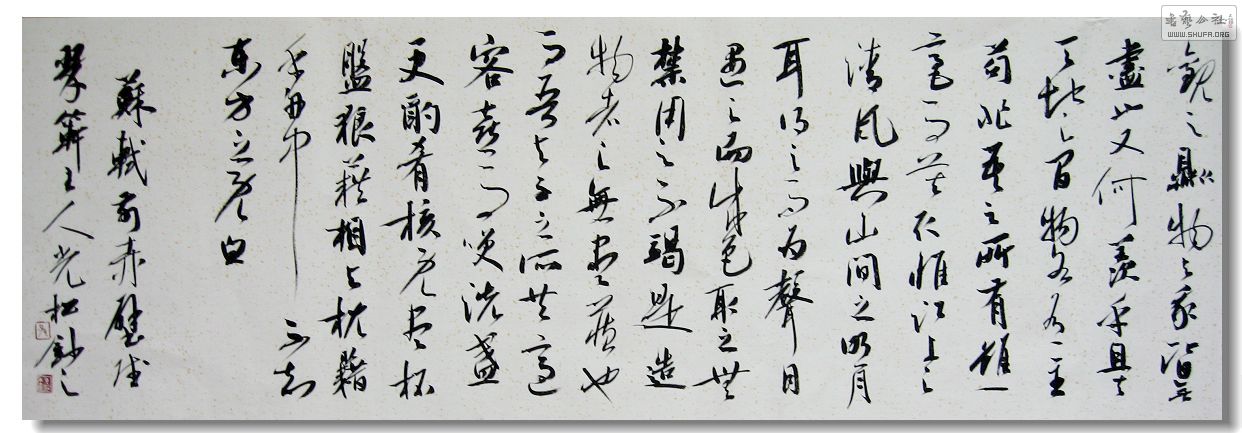 觀之則物與我皆無
盡也又何羨乎且夫
天地之間物各有主
苟非吾之所有雖一
毫而莫取惟江上之
清风與山間之明月
耳得之而为聲目
遇之而成色取之無
禁用之不竭是造
物者之無尽藏也
而吾与子之所共適
客喜而笑洗盏
更酌肴核既尽杯
盤狼藉相与枕藉
乎舟中 不知
東方之既白
蘇軾前赤壁賦
主人光松録之
書藝公社
WWW.SHUFA.ORG